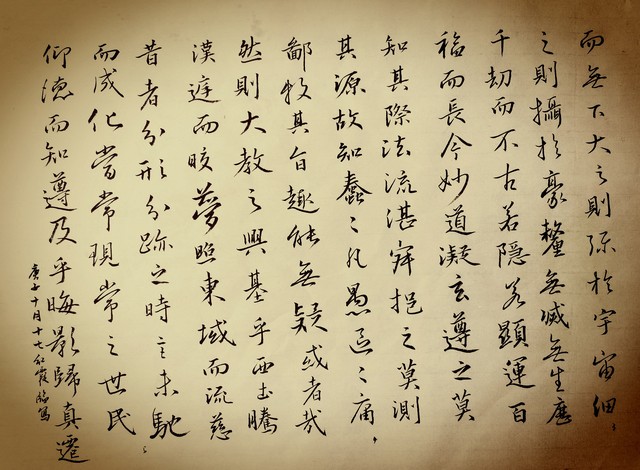 而無下大之則弥於宇宙細
之則攝於豪釐無滅無生歷
千劫而不古若隱若顯運百
福而長今妙道凝玄遵之莫
知其際法流湛寂挹之莫測
其源故知蠢〻凡愚區〻庸
鄙投其旨趣能無疑或者哉
然則大教之興基乎西土騰
漢庭而皎夢照東域而流慈
昔者分形分跡之時言未馳
而成化當常現常之世民
仰德而知遵及乎晦影歸真遷
庚子十月十七紅霞臨寫